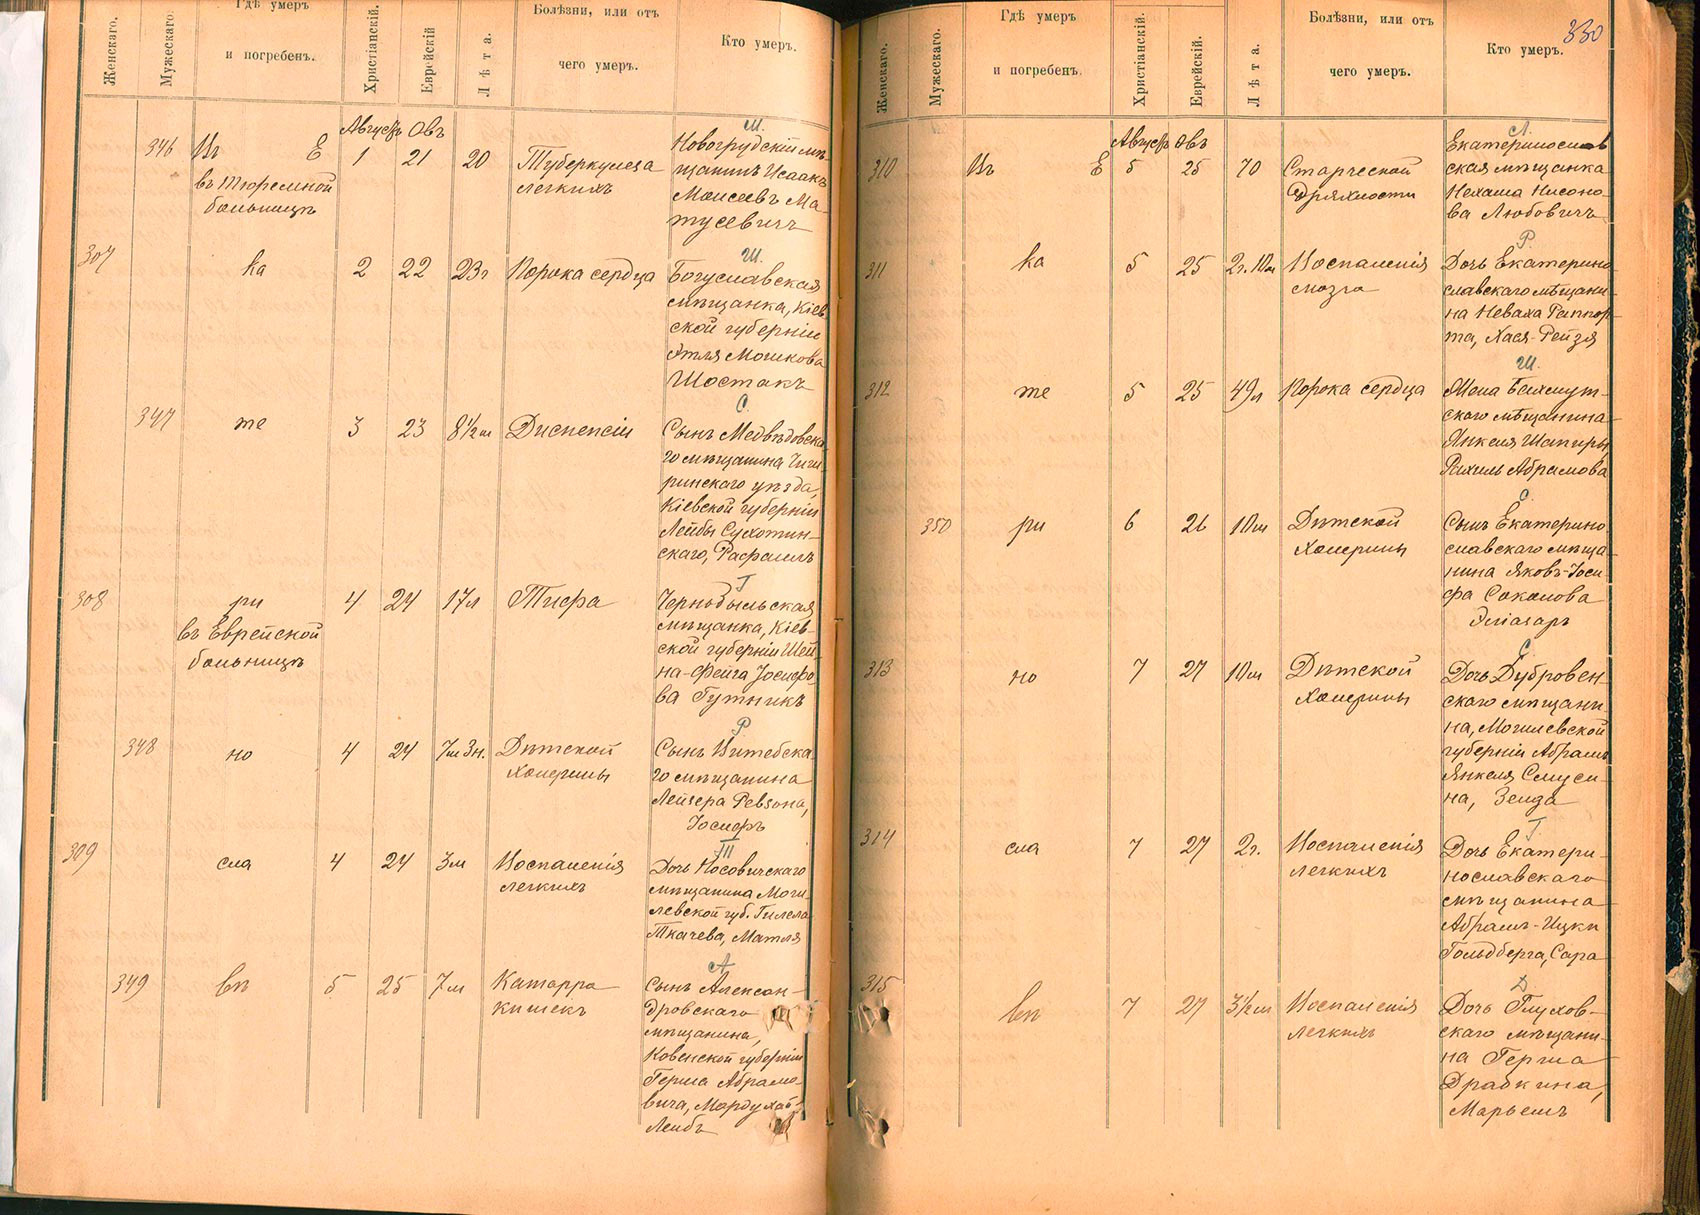 Женскаго.
Мужескаго.
Гдѣ умеръ
и погребенъ.
Христіанскій.
Еврейскій
Лѣта.
Болѣзни, или отъ
чего умеръ.
Кто умеръ.
Августъ Овъ
346 Въ Е 1 21 20 Туберкулеза
въ тюремной легкихъ
больницѣ
М.
Новогрудскій мѣ-
щанинъ Исаакъ
Моисеевъ Ма-
тусевичъ
307 ка 2 22 23г Порока сердца
Ш.
Богуславская
мѣщанка, Кіев-
ской губерніи
Этля Мошкова
Шостакъ
347 те 3 23 8½м Диспепсіи
С.
Сынъ Медвѣдовска-
го мѣщанина Чиги-
ринскаго уѣзда,
Кіевской губерніи
Лейбы Сухотин-
скаго, Рафаилъ
308 ри 4 24 17л Тифа
въ Еврейской
больницѣ
Г
Чернобыльская
мѣщанка, Кіев-
ской губерніи Шей-
на-Фейга Іосифо-
ва Гутникъ
348 но 4 24 7м 3н. Дѣтской
холерины
Р.
Сынъ Витебска-
го мѣщанина
Лейзера Ревзона,
Іосифъ
309 сла 4 24 3м Воспаленія
легкихъ
Т
Дочь Носовичскаго
мѣщанина Моги-
левской губ. Гилела
Ткачева, Матля
349 вѣ 5 25 7м Катарра
кишекъ
А
Сынъ Алексан-
дровскаго
мѣщанина,
Ковенской губерніи
Герша Абрамо-
вича, Мордухай-
Лейбъ
330
Женскаго.
Мужескаго.
Гдѣ умеръ
и погребенъ.
Христіанскій.
Еврейскій.
Лѣта.
Болѣзни, или отъ
чего умеръ.
Кто умеръ.
Августъ Овъ
310 Въ Е 5 25 70 Старческой
дряхлости
Л.
Екатеринослав
ская мѣщанка
Нехама Нисоно-
ва Любовичъ
311 ка 5 25 2г. 10м Воспаленія
мозга
Р.
Дочь Екатерино-
славскаго мѣщани-
на Неваха Раппор-
та, Хася-Рейзя
312 те 5 25 49л Порока сердца
Ш.
Жена Бахмут-
скаго мѣщанина
Янкеля Шапиры,
Рахиль Абрамова
350 ри 6 26 10м Дѣтской
холерины
С.
Сынъ Екатерино
славскаго мѣща-
нина Яковъ-Іоси-
фа Соколова
Эліазаръ
313 но 7 27 10м Дѣтской
холерины
С.
Дочь Дубровен-
скаго мѣщани-
на, Могилевской
губерніи Абрамъ
Янкеля Смуси-
на, Зелда
314 сла 7 27 2г. Воспаленія
легкихъ
Г.
Дочь Екатери-
нославскаго
мѣщанина
Абрамъ-Ицки
Гольдберга, Сара
315 вѣ 7 27 3½м Воспаленія
легкихъ
Д
Дочь Глухов-
скаго мѣщани-
на Герша
Драбкина,
Марьемъ